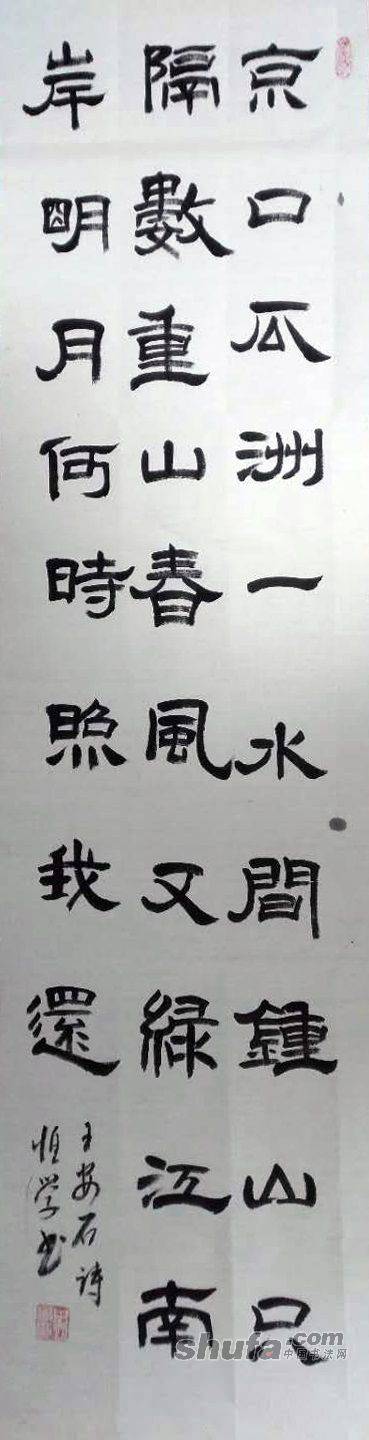 京口瓜洲一水間鍾山只
隔數重山春風又綠江南
岸明月何時照我還
王安石詩
恒学书
shufa.com
中国书法网